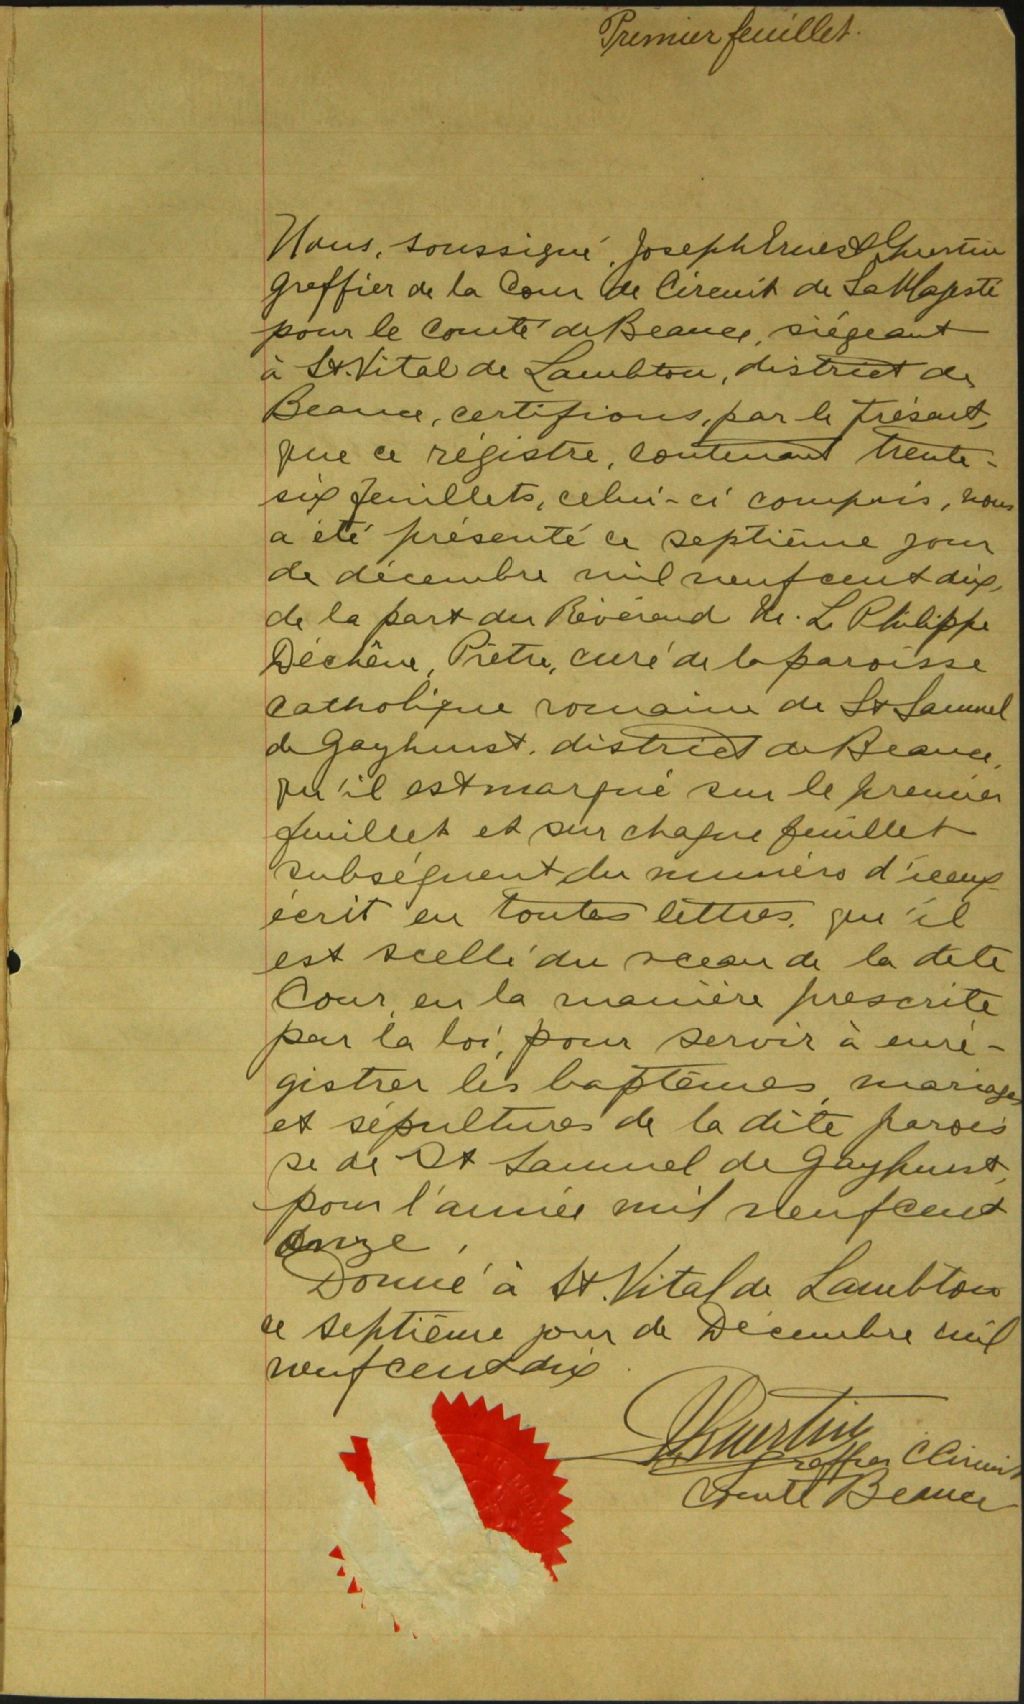 Premier feuillet.
Nous, soussigné, Joseph Ernest Guertin
greffier de la Cour de Circuit de Sa Majesté
pour le comté de Beauce, siégeant
à St. Vital de Lambton, district de
Beauce, certifions, par le présent,
que ce régistre, contenant trente-
six feuillets, celui-ci compris, nous
a été présenté ce septième jour
de décembre mil neuf cent dix,
de la part du Révérend M. L Philippe
Déchêne, Prêtre, curé de la paroisse
catholique romaine de St Samuel
de Gayhurst, district de Beauce,
qu'il est marqué sur le premier
feuillet et sur chaque feuillet
subséquent du numéro d'iceux
écrit en toutes lettres, qu'il
est scellé du sceau de la dite
Cour, en la manière prescrite
par la loi, pour servir à enré-
gistrer les baptêmes, mariages
et sépultures de la dite parois
se de St Samuel de Gayhurst,
pour l'année mil neuf cent
onze.
Donné à St. Vital de Lambton
ce septième jour de Décembre mil
neuf cent dix.
Guertin
Greffier C Circuit
Comté Beauce